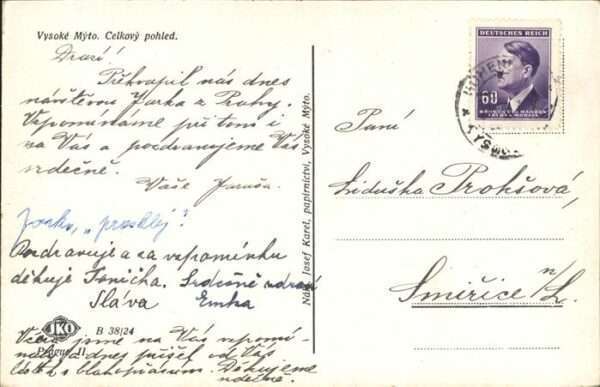 Vysoké Mýto. Celkový pohled.
Drazí!
Překvapil nás dnes
návštěvou Jarka z Prahy.
Vzpomínáme při tom i
na Vás a pozdravujeme Vás
srdečně.
Vaše Jaruša.
Jarka, „prosklej“?
Pozdravuje a za vzpomínku
děkuje Tonička. Srdečně zdraví
Sláva Emka
B 38/24
Prague II
Včera jsme na Vás vzpomí-
nali a dnes přišel od Vás
lístek s blahopřáním. Děkujeme
srdečně.
Nákl. Josef Karel, papírnictví, Vysoké Mýto.
DEUTSCHES REICH
60
BÖHMEN UND MÄHREN
ČECHY A MORAVA
HOHEN
VYSOK
Paní
Liduška Prokšová,
Smiřice n/L.